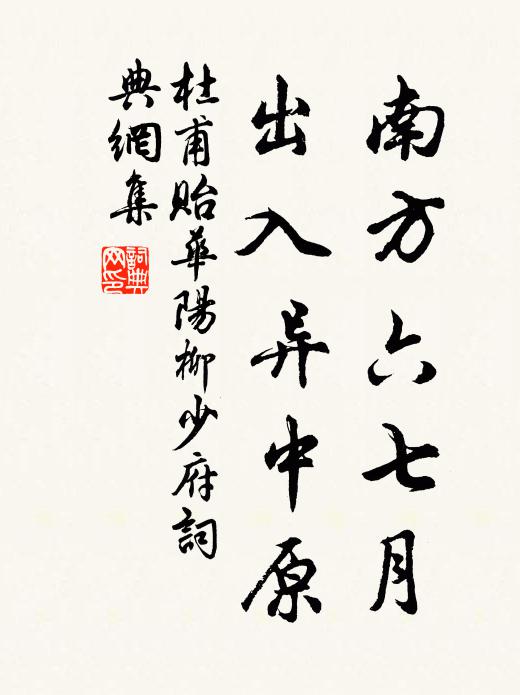 南方六七月
出入异中原
杜甫貽華陽柳少府詞
典網集
詞典网印